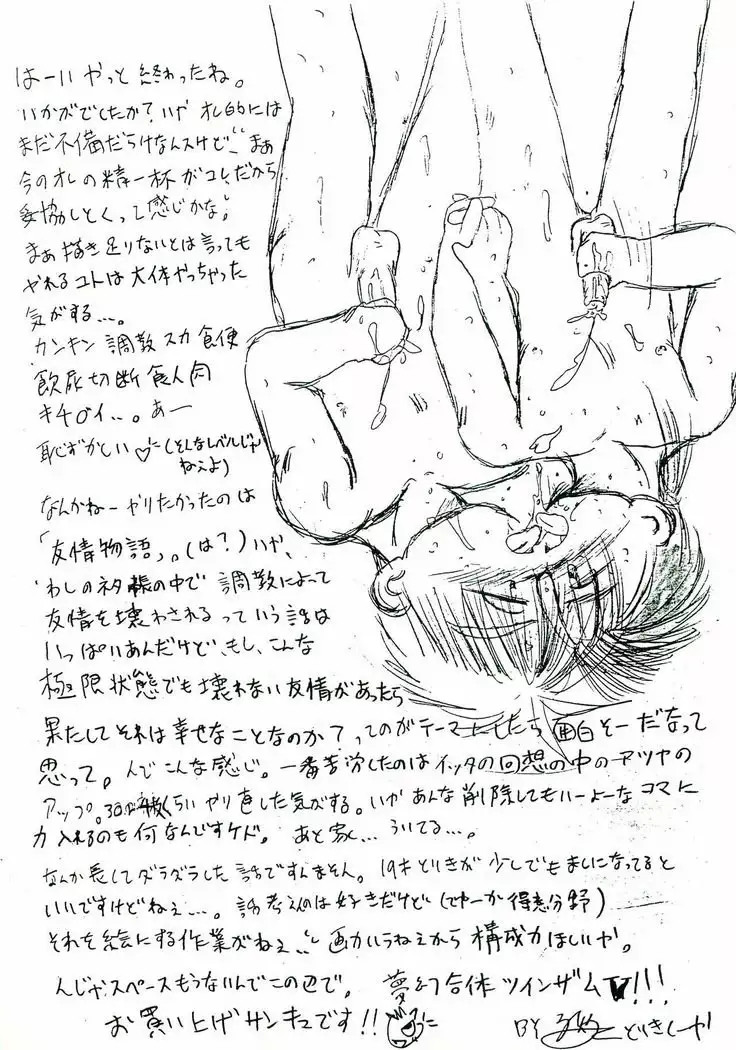 はーい やっと 終わったね。
いかがでしたか？いや オレ的には
まだ不備だらけなんスけど、まぁ
今のオレの精一杯がコレだから
妥協しとくって感じかな。
まぁ描き足りないとは言っても
やれるコトは大体やっちゃった
気がする…。
カンキン 調教 スカ 食便
飲尿 切断 食人肉
キチ○イ…。あー
恥ずかしい♡ (そんなレベルじゃ
ねえよ)
なんかねーやりたかったのは
「友情物語」。(は？) いや、
わしのネタ帳の中で 調教によって
友情を壊わされるっていう話は
いっぱいあんだけど、もし、こんな
極限状態でも壊れない友情があったら
果たしてそれは幸せなことなのか？ってのがテーマにしたら面白そーだなって
思って。んでこんな感じ。一番苦労したのはイッタの回想の中のアツヤの
アップ。30回くらいやり直した気がする。いかあんな削除してもいーよーなコマに
力入れるのも何なんですケド。あと ういてる…。
なんか長くてダラダラした話ですんません。19才 どりきが少しでもまいになってると
いいですけどねぇ…。話考えんのは好きだけど (てゆーか得意分野)
それを絵にする作業がねぇ、画力いらねえから構成力ほしいや。
んじゃスペースもうないんでこの辺で。夢幻合体ツインザムV!!!
お買い上げサンキュです!!
BY どりきしーが